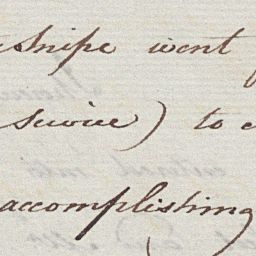 snipe went
service) to
accomplishing